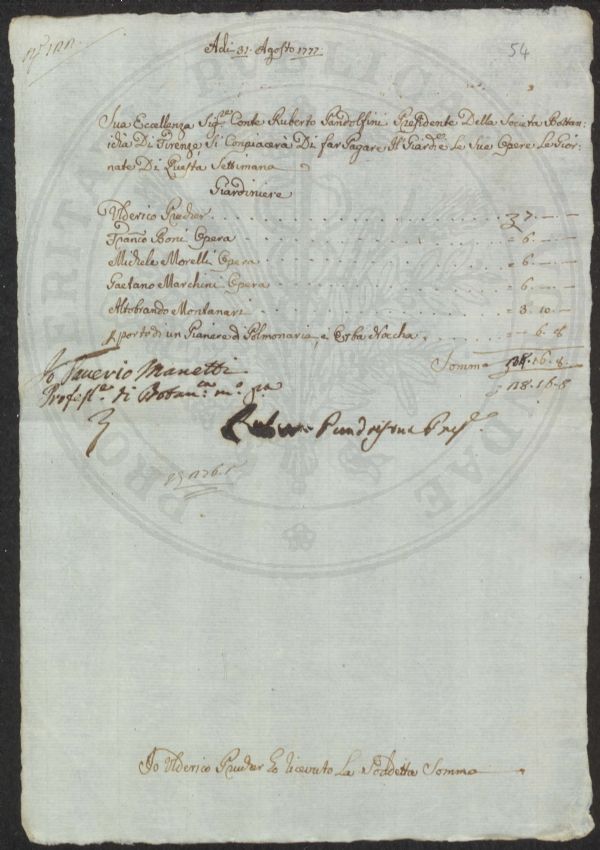 54
Adi 31. Agosto 1777.
Sua Eccellenza Sig.re Conte Ruberto Pandolfini Presidente Della Societa Bottan:
Di Firenze Si Conpiacerà Di far Pagare Al Giard.re e Le Sue Opere Le Gior:
nate Di Questa Settimana
Giardiniere
Ulderico Prucher 7
Franco Boni Opera = 6. —
Michele Morelli Opera = 6. —
Gaetano Marchini Opera = 6. —
Altobrando Montanari = 3. 10. —
porto di un Paniere d Polmonaria, e Erba = — 6. 8
Somma 16. 8.
18. 16. 8
Io Saverio Manetti
Profess.re di Botan.ca m.o p.a
Pandolfini Pres.
Io Ulderico Prucher ho riceuto La Soddetta Somma
PUBLICA
PRO